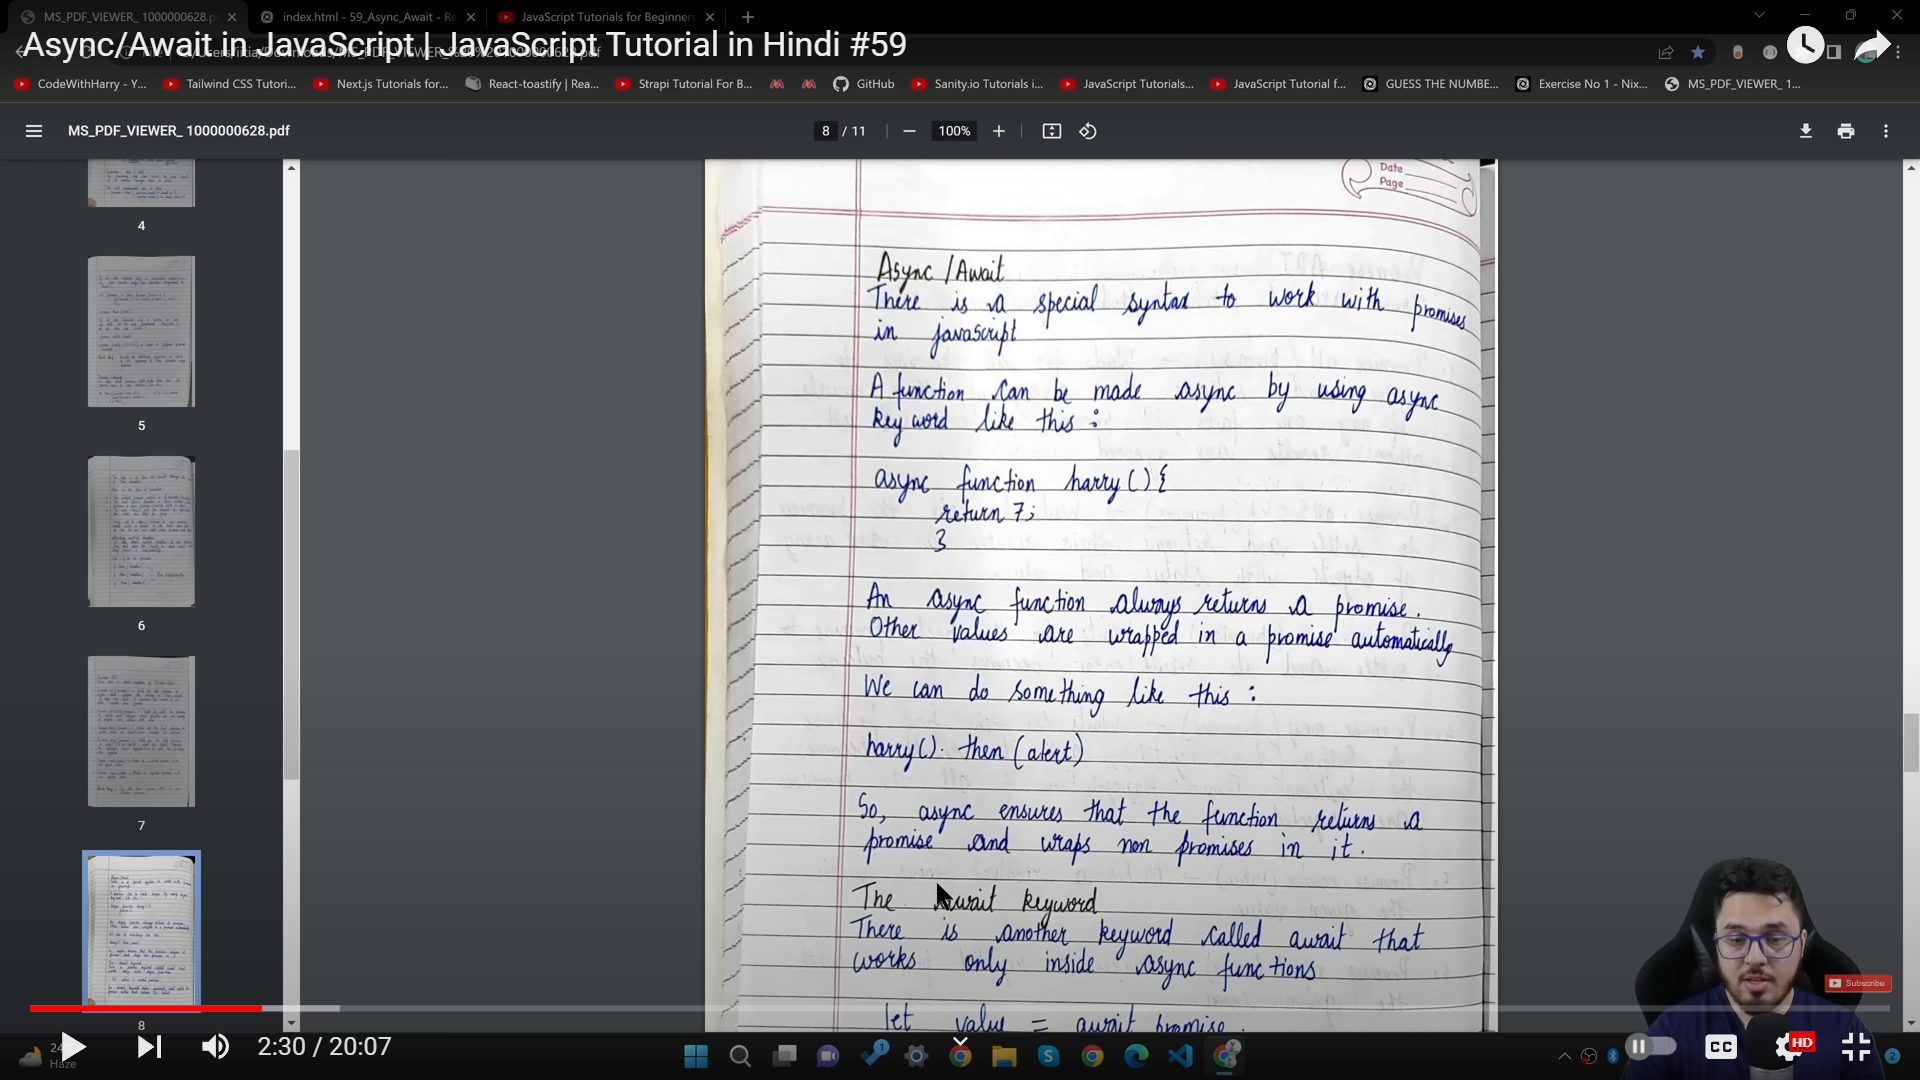 MS_PDF_VIEWER_ 1000000628.p
index.html - 59_Async_Await - Re
JavaScript Tutorials for Beginner
Async/Await in JavaScript | JavaScript Tutorial in Hindi #59
CodeWithHarry - Y...
Tailwind CSS Tutori...
Next.js Tutorials for...
React-toastify | Rea...
Strapi Tutorial For B...
GitHub
Sanity.io Tutorials i...
JavaScript Tutorials...
JavaScript Tutorial f...
GUESS THE NUMBE...
Exercise No 1 - Nix...
MS_PDF_VIEWER_ 1...
MS_PDF_VIEWER_ 1000000628.pdf
8 / 11
100%
4
5
6
7
8
Date
Page
Async /Await
There is a special syntax to work with promises
in javascript
A function can be made async by using async
key word like this :
async function harry () {
return 7;
}
An async function always returns a promise.
Other values are wrapped in a promise automatically
We can do something like this :
harry(). then (alert)
So, async ensures that the function returns a
promise and wraps non promises in it.
The await keyword
There is another keyword called await that
works only inside async functions
let value = await promise
Subscribe
2:30 / 20:07
Haze
CC
HD
2